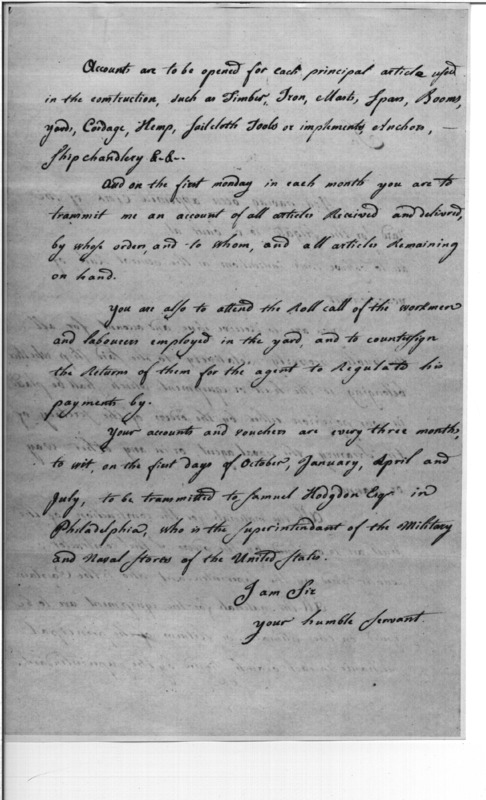 Accounts are to be opened for each principal article used
in the construction, such as Timber, Iron, Masts, Spars, Booms,
yards, Cordage, Hemp, Sailcloth Tools or implements, Anchors, —
Ship chandlery &c &c.
And on the first monday in each month you are to
transmit me an account of all articles Received and delivered,
by whose order, and to whom, and all articles Remaining
on hand.
You are also to attend the Roll call of the workmen
and labourers employed in the yard, and to countersign
the Returns of them for the agent to Regulate his
payments by.
Your accounts and vouchers are every three months,
to wit, on the first days of October, January, April and
July, to be transmitted to Samuel Hodgdon Esqr in
Philadelphia, who is the Superintendant of the Military
and Naval Stores of the United States.
I am Sir
your humble Servant.